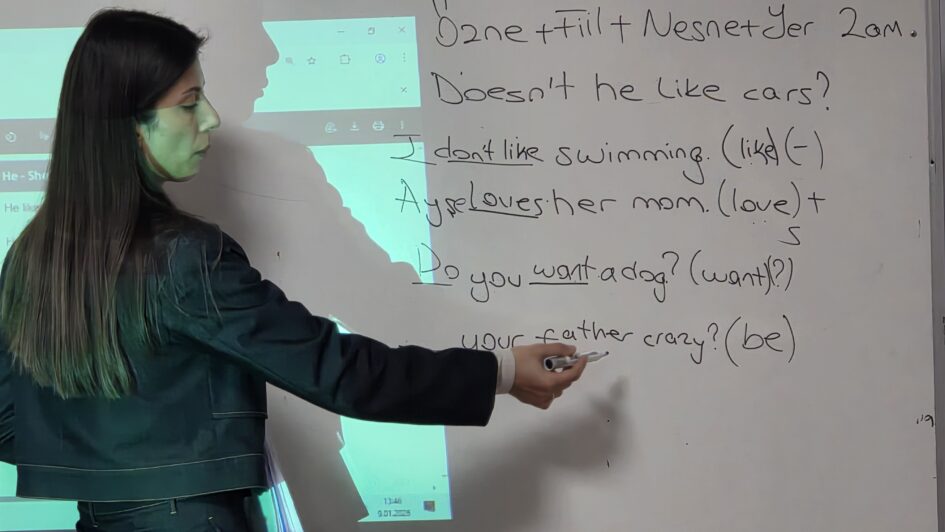 Özne + Fiil + Nesne + Yer Zam.
Doesn't he like cars?
I don't like swimming. (like) (-)
Ayşe loves her mom. (love) +
s
Do you want a dog? (want) (?)
your father crazy? (be)
He - She
He like
13:46
9.01.2025